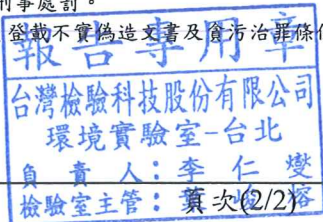 刑事處罰。
登載不實偽造文書及貪污治罪條
報告專用章
台灣檢驗科技股份有限公司
環境實驗室-台北
負責人:李仁燮
檢驗室主管: 溶
頁次(2/2)